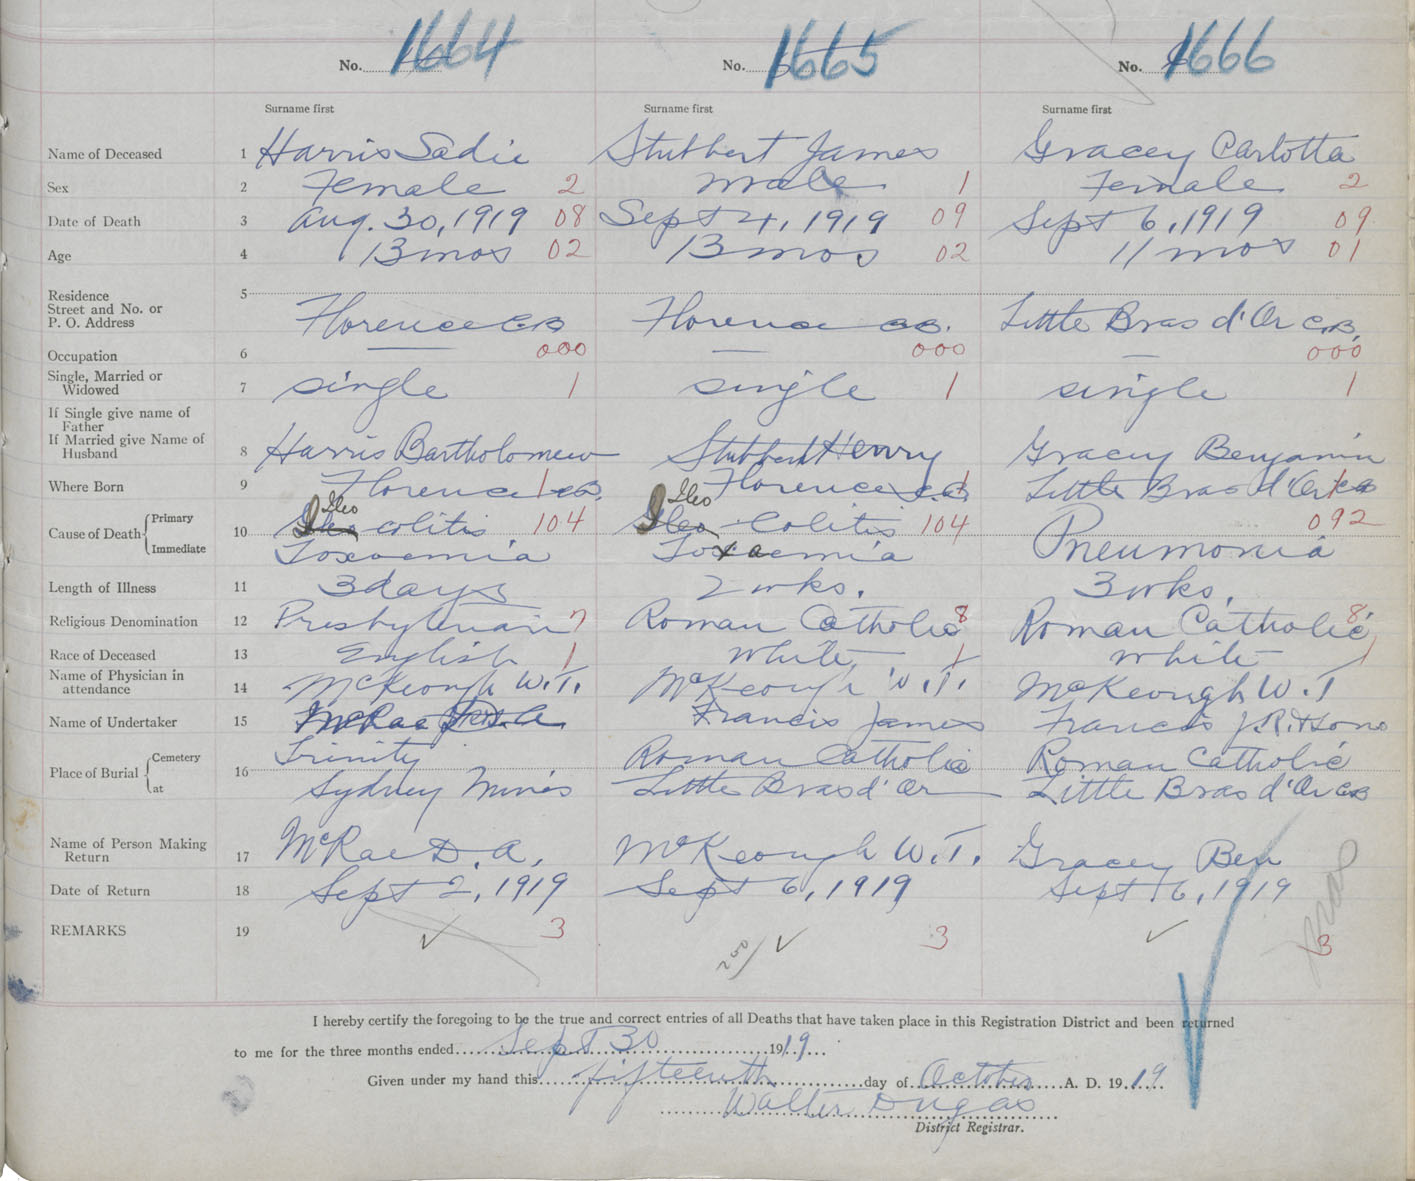 No. 1664 No. 1665 No. 1666
Surname first Surname first Surname first
Name of Deceased 1 Harris Sadie Stubbert James Gracey Carlotta
Sex 2 Female 2 male 1 Female 2
Date of Death 3 Aug. 30, 1919 08 Sept 4, 1919 09 Sept 6, 1919 09
Age 4 13 mos 02 13 mos 02 11 mos 01
Residence 5
Street and No. or
P. O. Address Florence C.B Florence C.B. Little Bras d'Or C.B.
Occupation 6 — 000 — 000 — 000
Single, Married or
Widowed 7 single 1 single 1 single 1
If Single give name of
Father
If Married give Name of
Husband 8 Harris Bartholomew Stubbert Henry Gracey Benjamin
Where Born 9 Florence C.B. 1 Florence C.B. 1 Little Bras d'Or CB 1
Ileo Ileo
Cause of Death { Primary 10 Ileo colitis 104 Ileo-Colitis 104 092
Immediate Toxaemia Toxaemia Pneumonia
Length of Illness 11 3 days 2 wks. 3 wks.
Religious Denomination 12 Presbyterian 7 Roman Catholic 8 Roman Catholic 8
Race of Deceased 13 English 1 white 1 white 1
Name of Physician in
attendance 14 McKeough W.T. McKeough W.T. McKeough W.T
Name of Undertaker 15 McRae Francis James Francis J.R. & Sons
Place of Burial { Cemetery 16 Trinity Roman Catholic Roman Catholic
at Sydney Mines Little Bras d'Or Little Bras d'Or CB
Name of Person Making
Return 17 McRae D. A. McKeough W.T. Gracey Ben
Date of Return 18 Sept 2, 1919 Sept 6, 1919 Sept 6, 1919
REMARKS 19 ✓ 3 ✓ 3 ✓ 3
I hereby certify the foregoing to be the true and correct entries of all Deaths that have taken place in this Registration District and been returned
to me for the three months ended Sept 30 1919
Given under my hand this fifteenth day of October A. D. 1919
Walter Dugas
District Registrar.